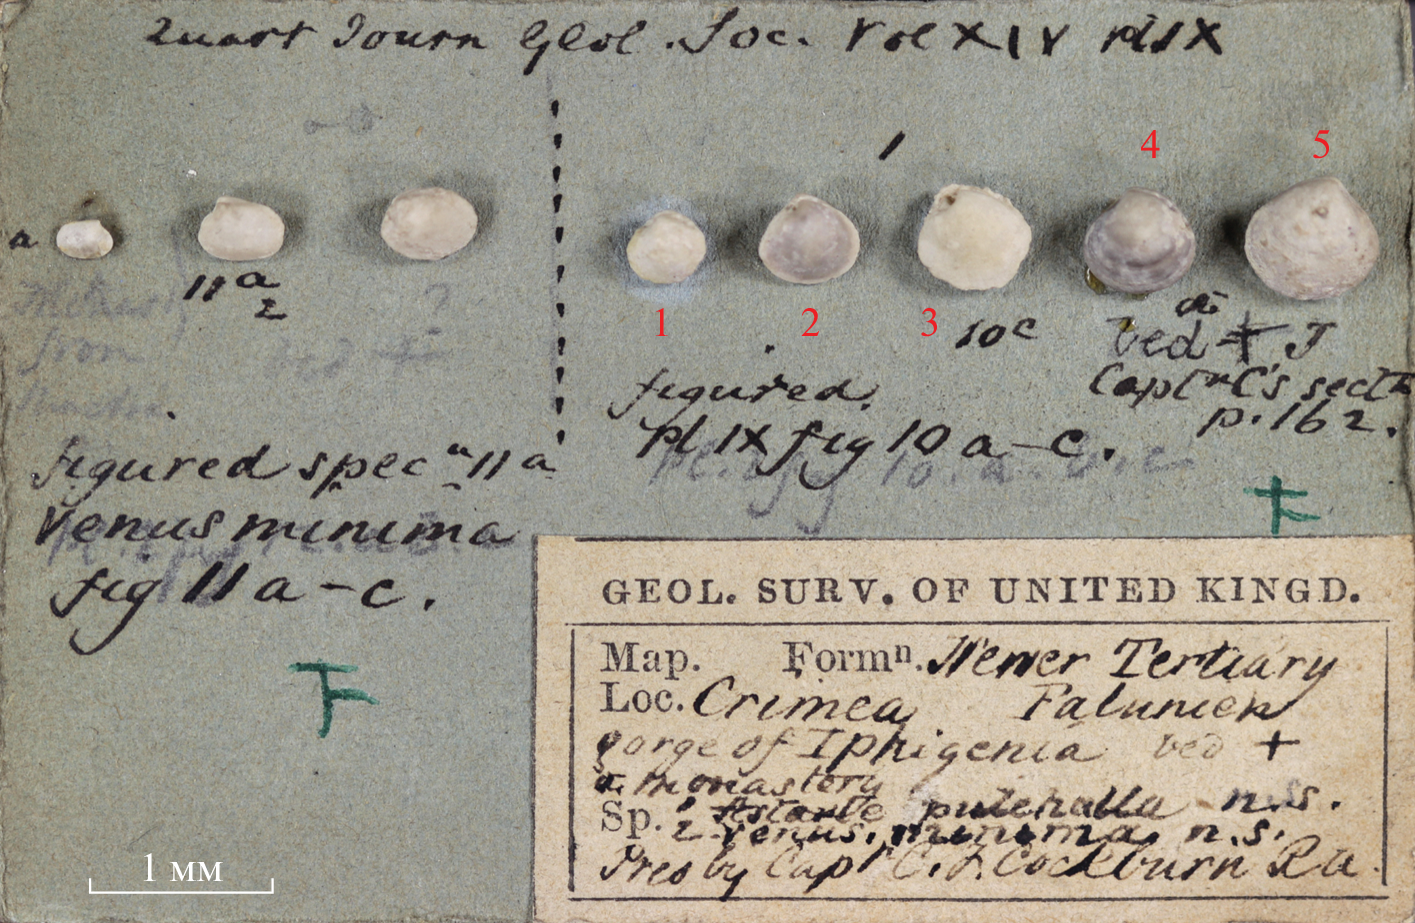 Quart Journ Geol. Soc. Vol XIV pl IX
1
4
5
a
11 a
2
1
2
3
10 c
bed + J
Capt.n C's sectn
p. 162.
figured.
Pl IX fig 10 a-c.
figured specn 11 a
Venus minima
fig 11 a-c.
F
GEOL. SURV. OF UNITED KINGD.
Map. Formn. Newer Tertiary
Loc. Crimea Falunien
gorge of Iphigenia bed +
monastery
Sp. 1 Astarte pulchella n.s.
2 Venus minima n.s.
Pres by Capt C. F. Cockburn R.A.
1 мм